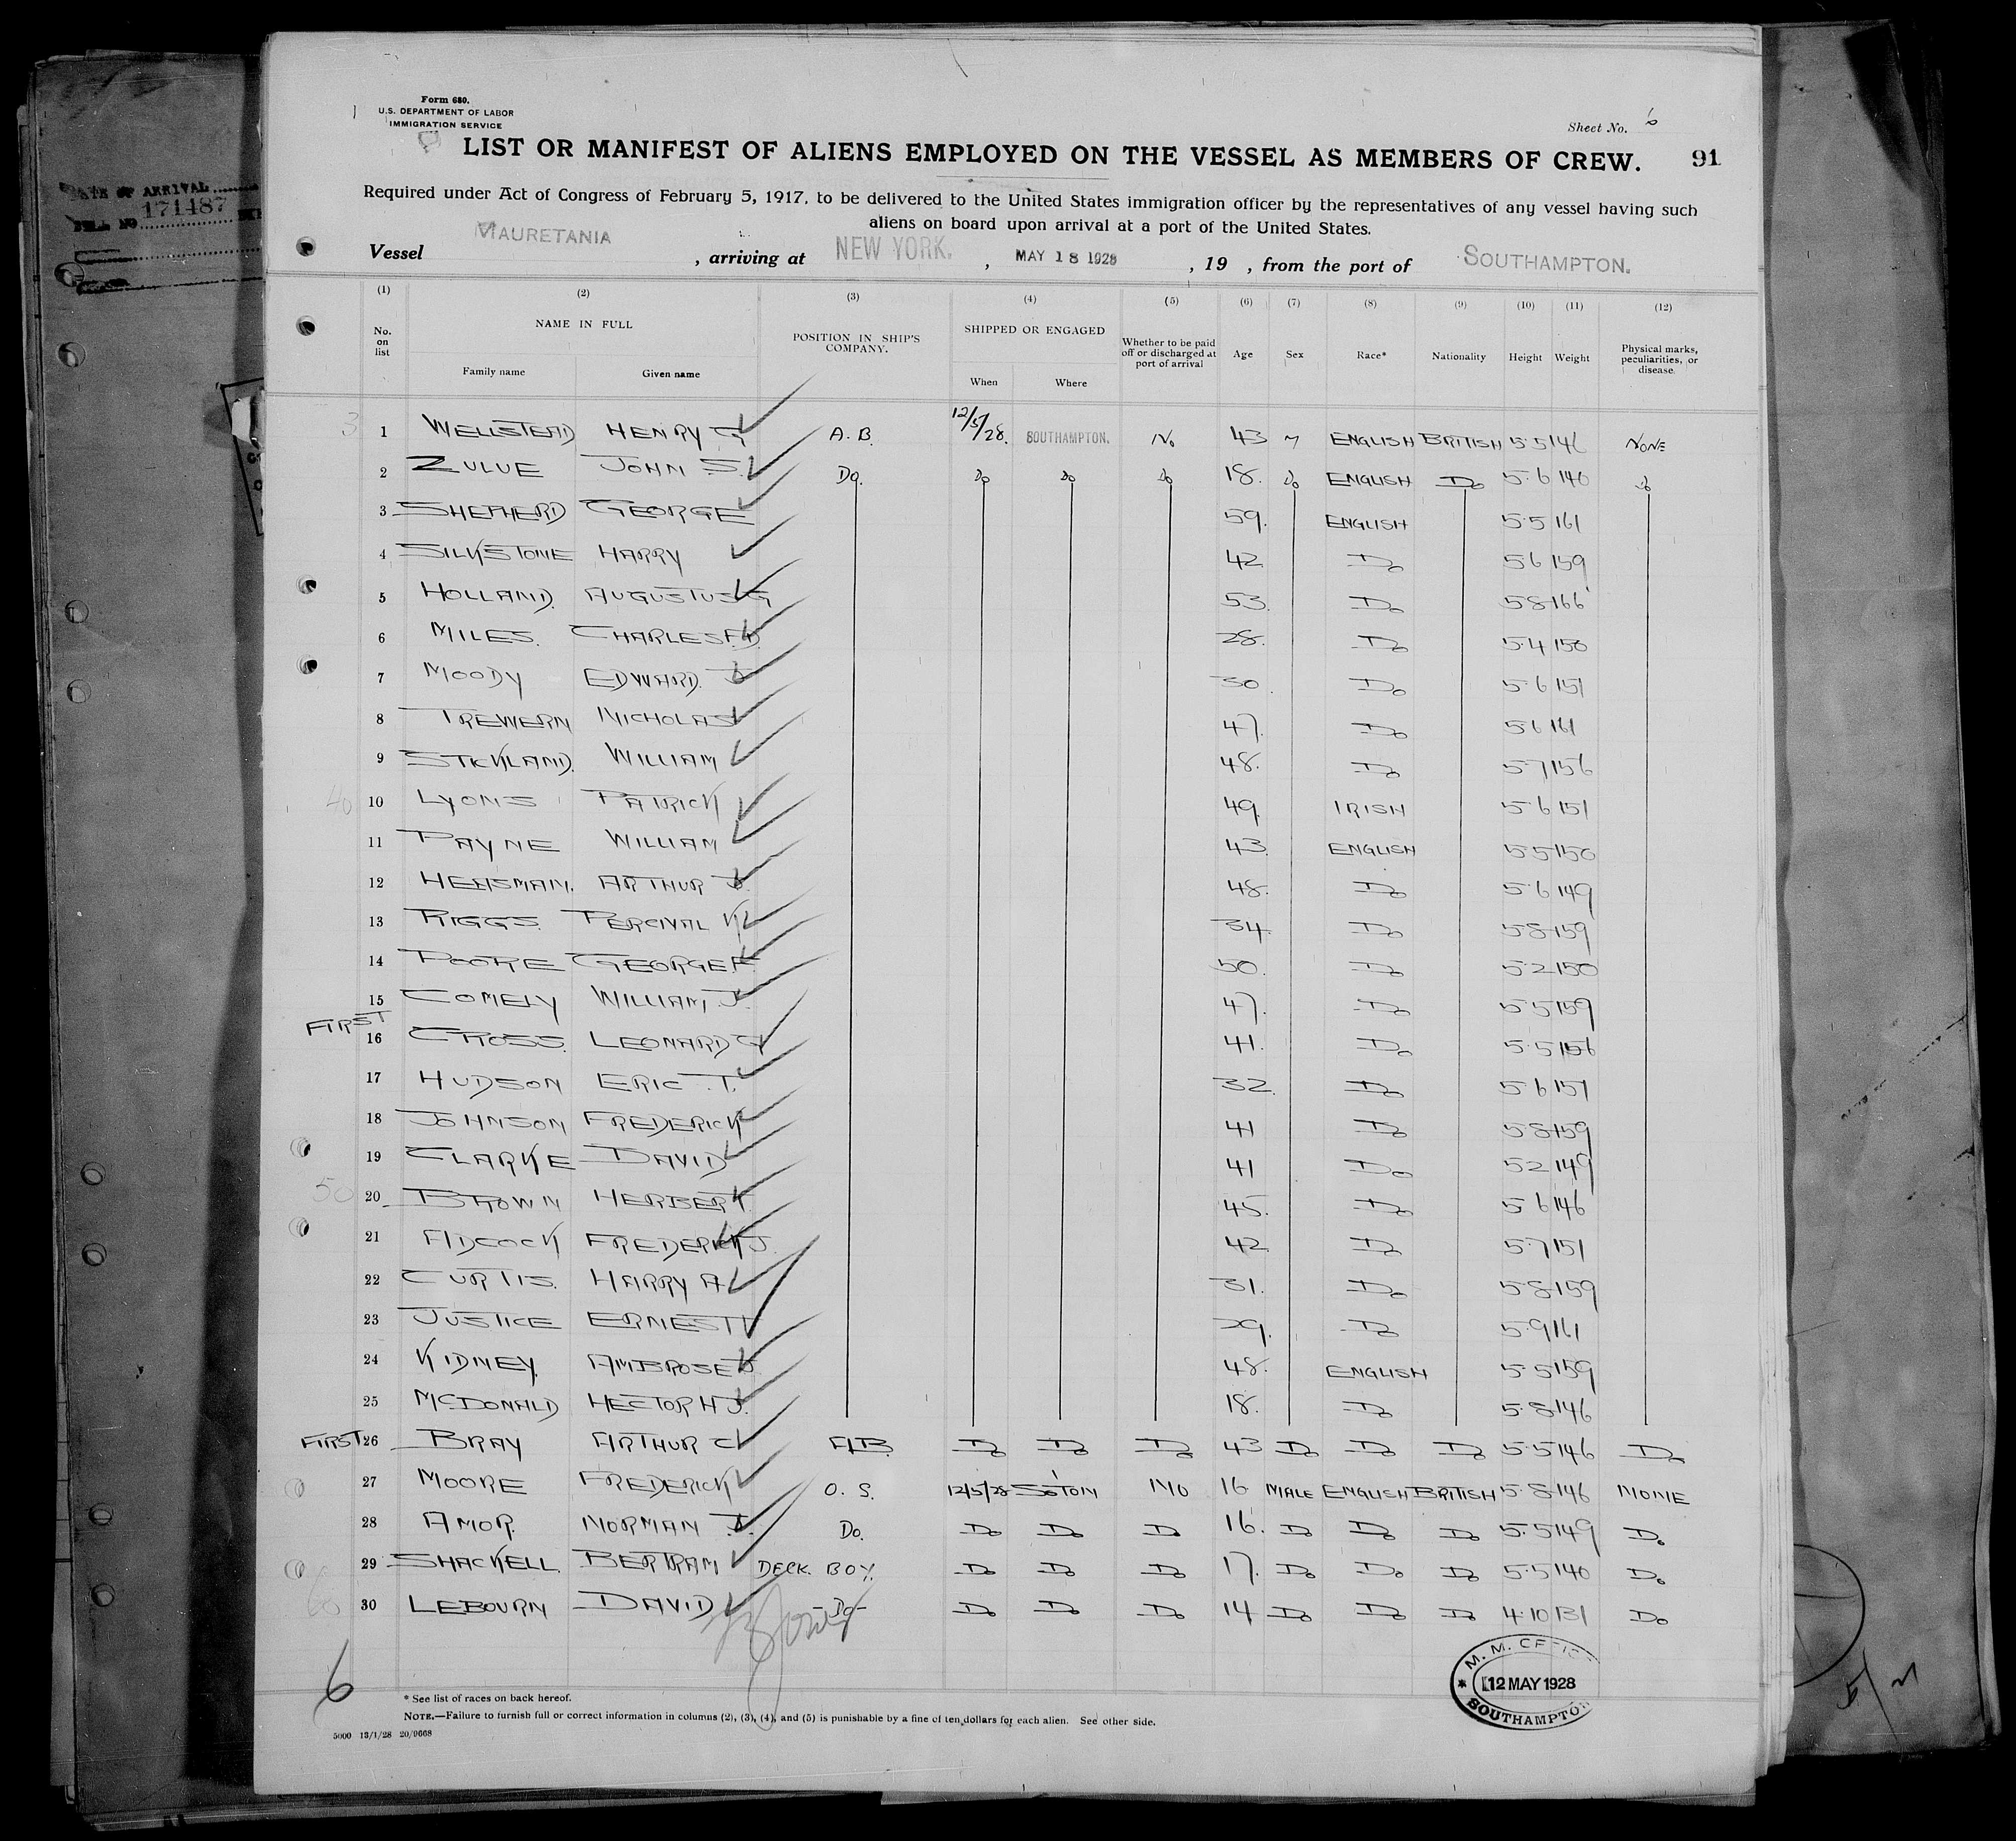 Form 680.
U.S. DEPARTMENT OF LABOR
IMMIGRATION SERVICE
Sheet No. 6
LIST OR MANIFEST OF ALIENS EMPLOYED ON THE VESSEL AS MEMBERS OF CREW. 91
DATE OF ARRIVAL
171487
Required under Act of Congress of February 5, 1917, to be delivered to the United States immigration officer by the representatives of any vessel having such
aliens on board upon arrival at a port of the United States.
Vessel MAURETANIA, arriving at NEW YORK., MAY 18 1928, 19 , from the port of SOUTHAMPTON.
(1) (2) (3) (4) (5) (6) (7) (8) (9) (10) (11) (12)
No. on list NAME IN FULL Family name Given name POSITION IN SHIP'S COMPANY. SHIPPED OR ENGAGED When Where Whether to be paid off or discharged at port of arrival Age Sex Race* Nationality Height Weight Physical marks, peculiarities, or disease.
3 1 WELLSTEAD HENRY G A.B. 12/5/28. SOUTHAMPTON. No 43 M ENGLISH BRITISH 5.5 146 NONE
2 ZULUE JOHN S. Do. Do Do Do 18. Do ENGLISH Do 5.6 140 Do
3 SHEPHERD GEORGE 59. ENGLISH 5.5 161
4 SILKSTONE HARRY 42 Do 5.6 159
5 HOLLAND. AUGUSTUS G 53. Do 5.8 166
6 MILES. CHARLES F.D. 28. Do 5.4 150
7 MOODY EDWARD. J 30. Do 5.6 151
8 TREWERN NICHOLAS 47. Do 5.6 161
9 STCKLAND. WILLIAM 48. Do 5.7 156
40 10 LYONS PATRICK 49. IRISH 5.6 151
11 PAYNE WILLIAM 43. ENGLISH 5.5 150
12 HEASMAN. ARTHUR J. 48. Do 5.6 149
13 RIGGS. PERCIVAL K 34. Do 5.8 159
14 POORE GEORGE F. 50. Do 5.2 150
15 COMELY WILLIAM J. 47. Do 5.5 159
FIRST 16 CROSS. LEONARD G 41. Do 5.5 156
17 HUDSON ERIC T. 32. Do 5.6 151
18 JOHNSON FREDERICK 41 Do 5.8 159
19 CLARKE DAVID 41 Do 5.2 149
50 20 BROWN HERBERT. 45. Do 5.6 146
21 ADCOCK FREDERICK J. 42 Do 5.7 151
22 CURTIS. HARRY A. 31. Do 5.8 159
23 JUSTICE ERNEST 29. Do 5.9 161
24 KIDNEY. AMBROSE J. 48. ENGLISH 5.5 159
25 McDONALD HECTOR H J. 18. Do 5.8 146
FIRST 26 BRAY ARTHUR C A.B. Do Do Do 43 Do Do Do 5.5 146 Do
27 MOORE FREDERICK O. S. 12/5/28 SO'TON NO 16 MALE ENGLISH BRITISH 5.8 146 NONE
28 AMOR. NORMAN J. Do. Do Do Do 16. Do Do Do 5.5 149 Do
29 SHACKELL. BERTRAM DECK. BOY. Do Do Do 17. Do Do Do 5.5 140 Do
60 30 LEBOURN DAVID -Do- Do Do Do 14 Do Do Do 4.10 131 Do
6
M. M. OFFICE
12 MAY 1928
SOUTHAMPTON
* See list of races on back hereof.
NOTE.—Failure to furnish full or correct information in columns (2), (3), (4), and (5) is punishable by a fine of ten dollars for each alien. See other side.
5000 13/1/28 20/9668